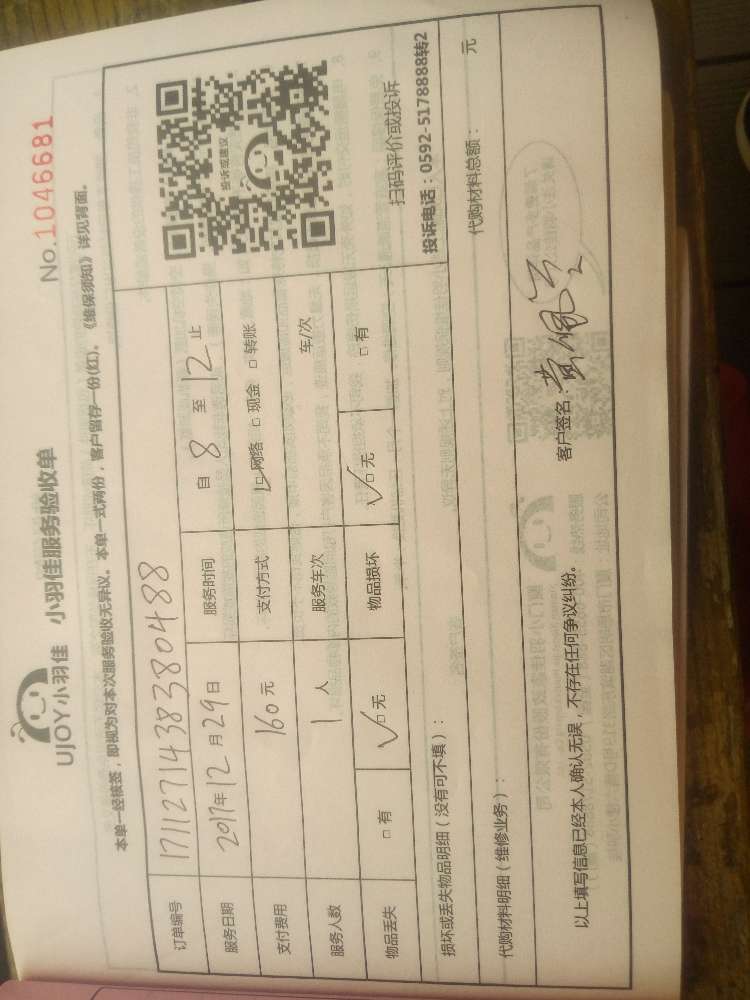 UJOY小羽佳 小羽佳服务验收单 No.1046681
本单一经核签，即视为对本次服务验收无异议。本单一式两份，客户留存一份(红)。《维保须知》详见背面。
订单编号 17112714383380488
服务日期 2017年12月29日 服务时间 自8至12止
支付费用 160元 支付方式 ☑网络 □现金 □转账
服务人数 1人 服务车次 车/次
物品丢失 □有 ☑无 物品损坏 ☑无 □有
投诉或建议
扫码评价或投诉
投诉电话：0592-5178888转2
损坏或丢失物品明细（没有可不填）：
代购材料明细（维修业务）： 代购材料总额： 元
以上填写信息已经本人确认无误，不存在任何争议纠纷。 客户签名：